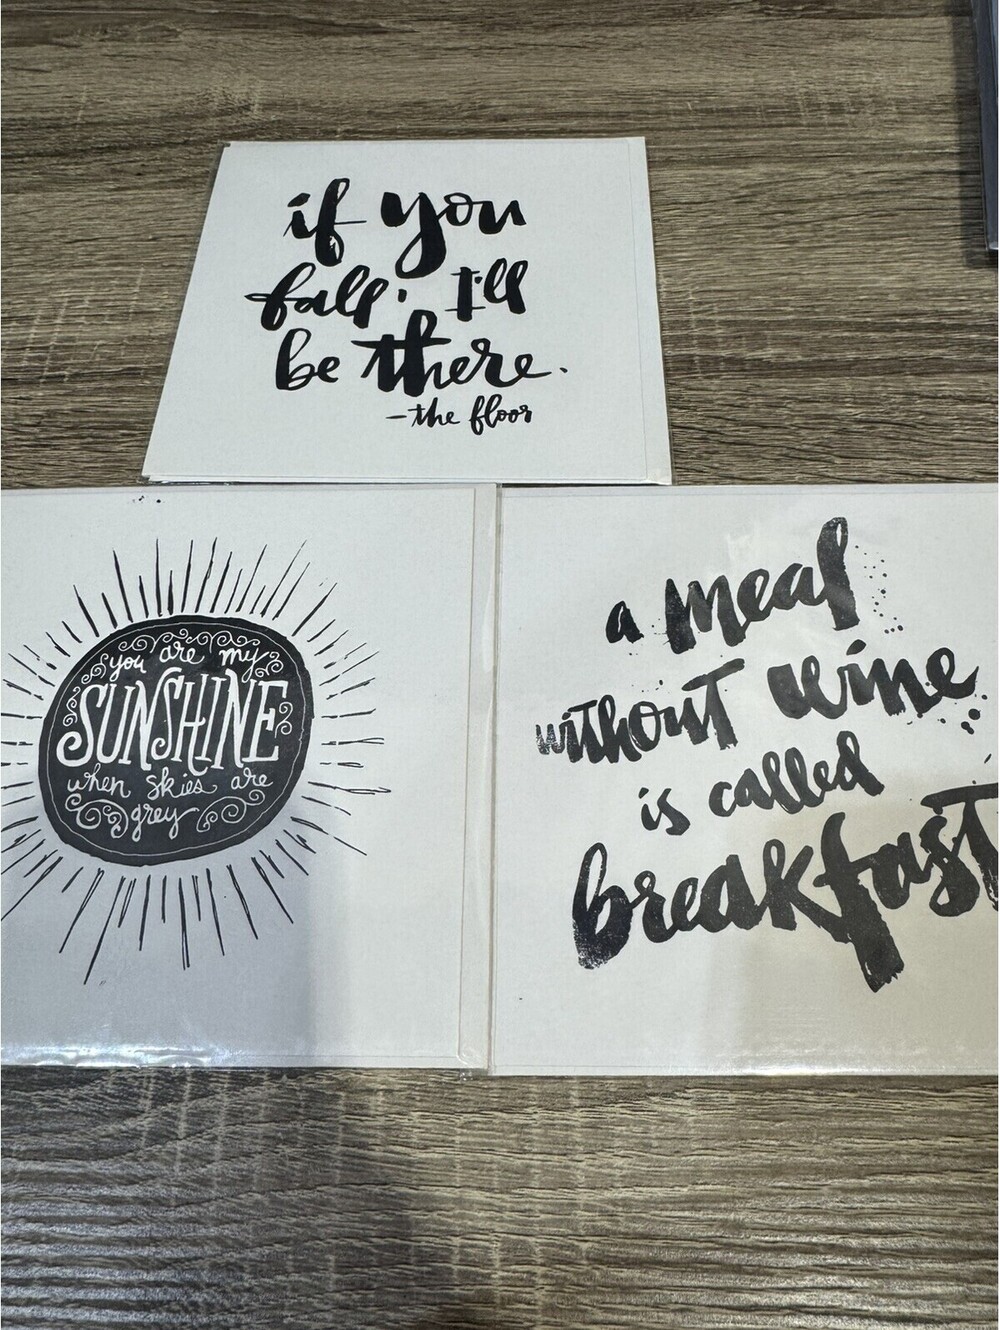 if you
fall, I'll
be there.
-the floor
you are my
SUNSHINE
when skies are
grey
a meal
without wine
is called
breakfast